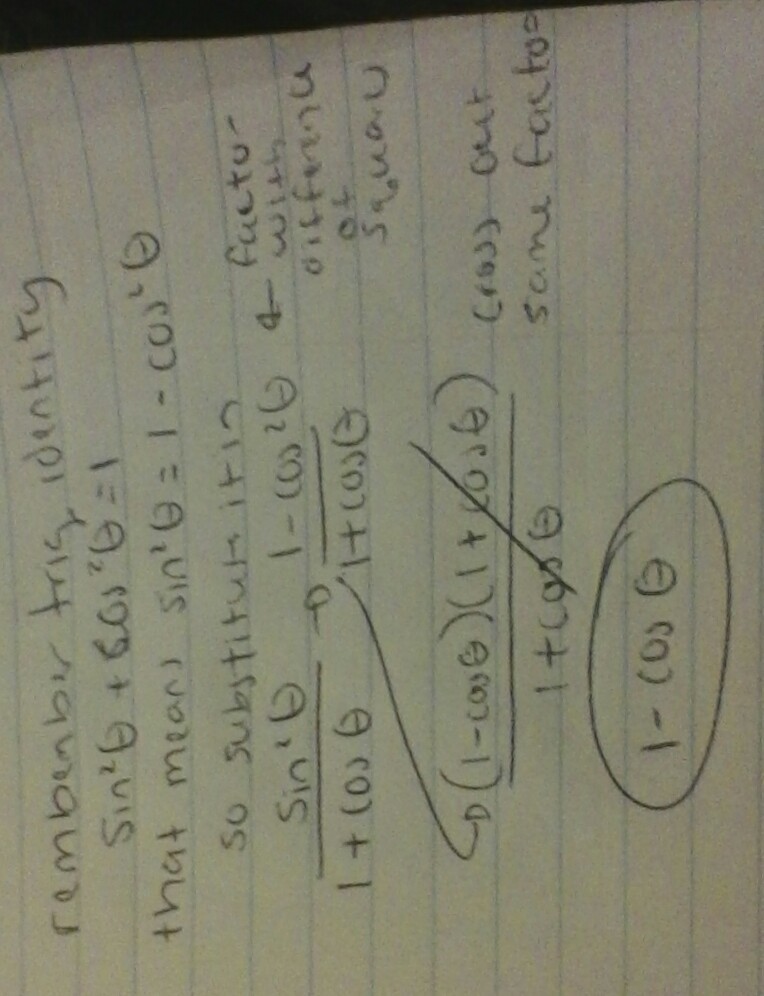 remember trig identity
sin²θ + cos²θ = 1
that means sin²θ = 1 - cos²θ
so substitute it in
sin²θ / 1 + cos θ → 1 - cos²θ / 1 + cos θ ← factor
with
difference
of
square
→ (1 - cos θ)(1 + cos θ) / 1 + cos θ cross out
same factor
1 - cos θ